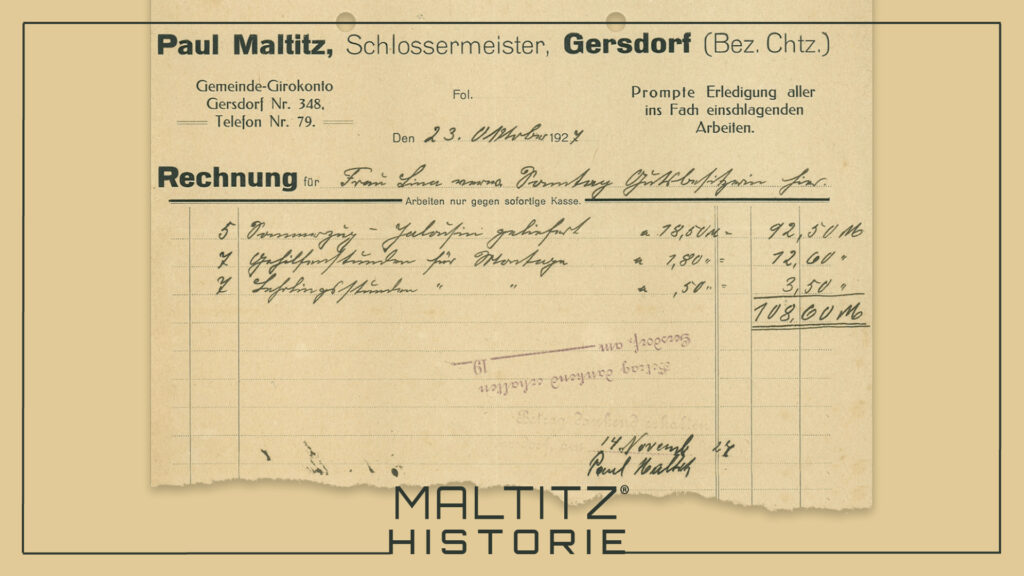 Paul Maltitz, Schlossermeister, Gersdorf (Bez. Chtz.)
Gemeinde-Girokonto
Gersdorf Nr. 348,
Telefon Nr. 79.
Fol.
Prompte Erledigung aller
ins Fach einschlagenden
Arbeiten.
Den 23. Oktober 1927
Rechnung für Frau Lina verw. Sonntag Gutsbesitzerin hier.
Arbeiten nur gegen sofortige Kasse.
5 Sommerzug-Jalousien geliefert a 18,50 M - 92,50 M
7 Gehilfenstunden für Montage a 1,80 " - 12,60 "
7 Lehrlingsstunden " " a ,50 " - 3,50 "
108,60 M
Gersdorf, am 19
Betrag dankend erhalten
14 Novemb 27
Paul Maltitz
MALTITZ®
HISTORIE